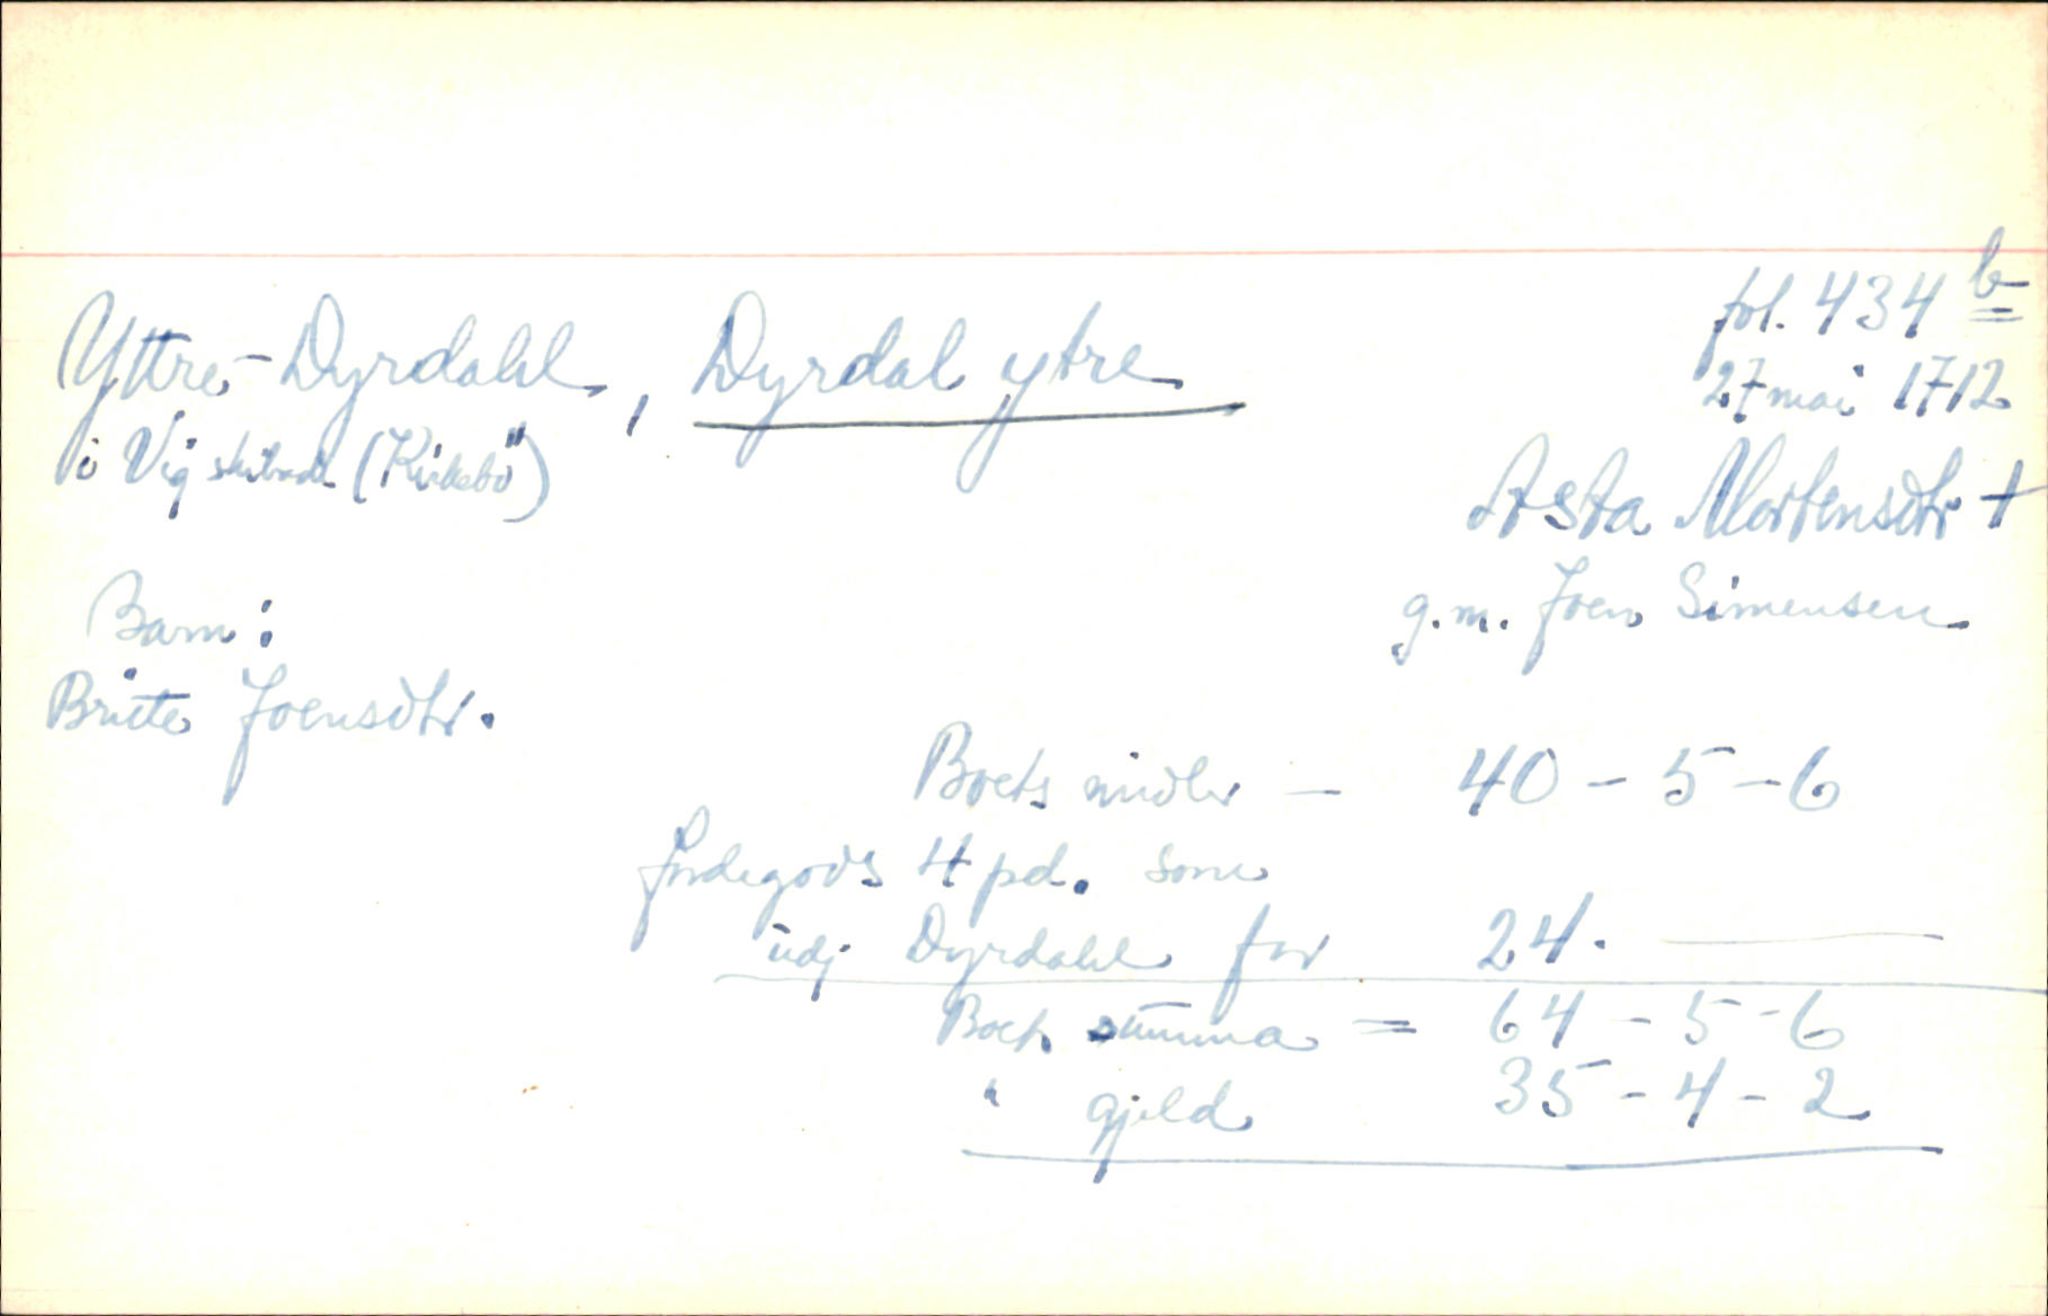 fol. 434 b
Yttre-Dyrdahl, Dyrdal ytre
27 mai 1712
i Vig skibrede (Kirkebö)
Asta Mortensdtr †
g.m. Joen Simensen
Barn:
Briite Joensdtr.
Boets midler — 40 - 5 - 6
Jordegods 4 pd. som
udj Dyrdahl for 24. —
Boets summa = 64 - 5 - 6
" gjeld 35 - 4 - 2